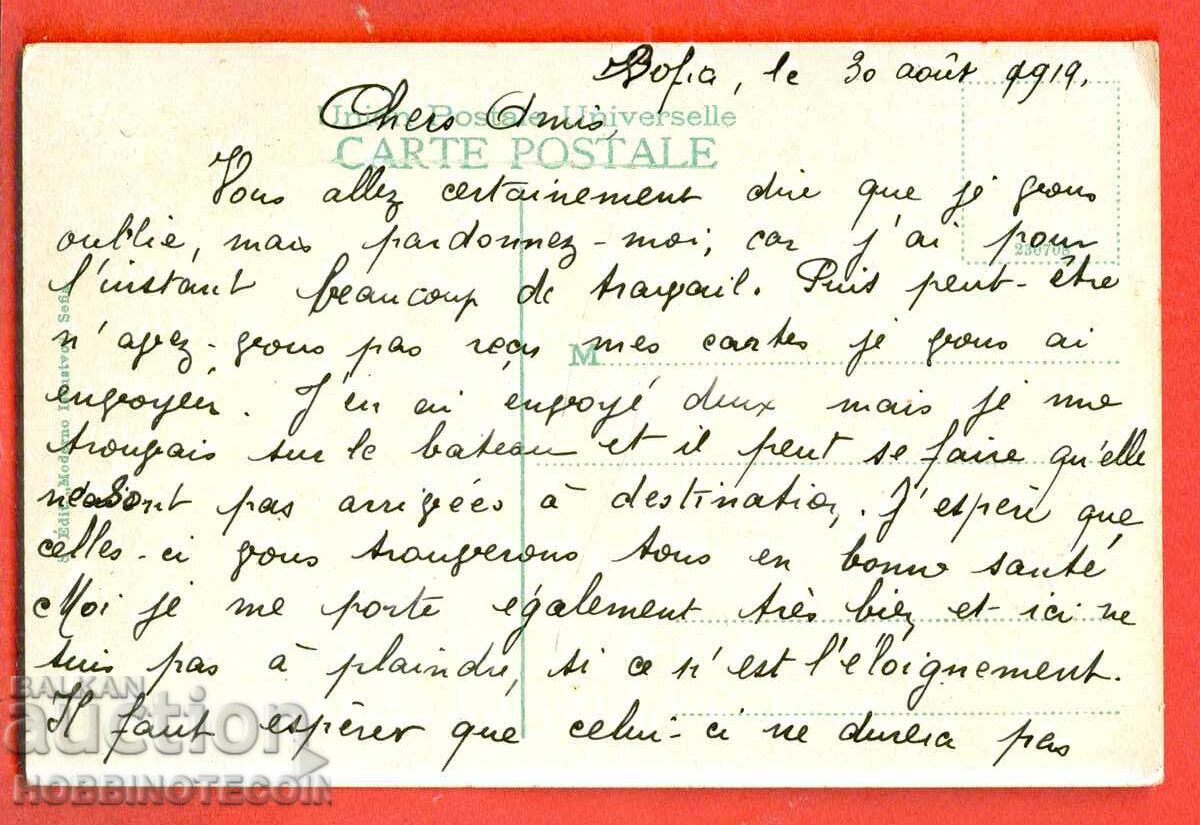 Sofia, le 30 août 1919.
Union Postale Universelle
Chers Amis,
CARTE POSTALE
Vous allez certainement dire que je vous
oublie, mais pardonnez-moi, car j'ai pour
230708
l'instant beaucoup de travail. Puis peut-être
n'avez-vous pas reçu mes cartes je vous ai
M
envoyées. J'en ai envoyé deux mais je me
trouvais sur le bateau et il peut se faire qu'elle
ne soient pas arrivées à destination. J'espère que
celles-ci vous trouverons tous en bonne santé
Moi je me porte également très bien et ici ne
suis pas à plaindre, si ce n'est l'éloignement.
Il faut espérer que celui-ci ne durera pas
Édit. „Moderno Izkustvo" Sofia
BALKAN
auction
HOBBINOTECOIN